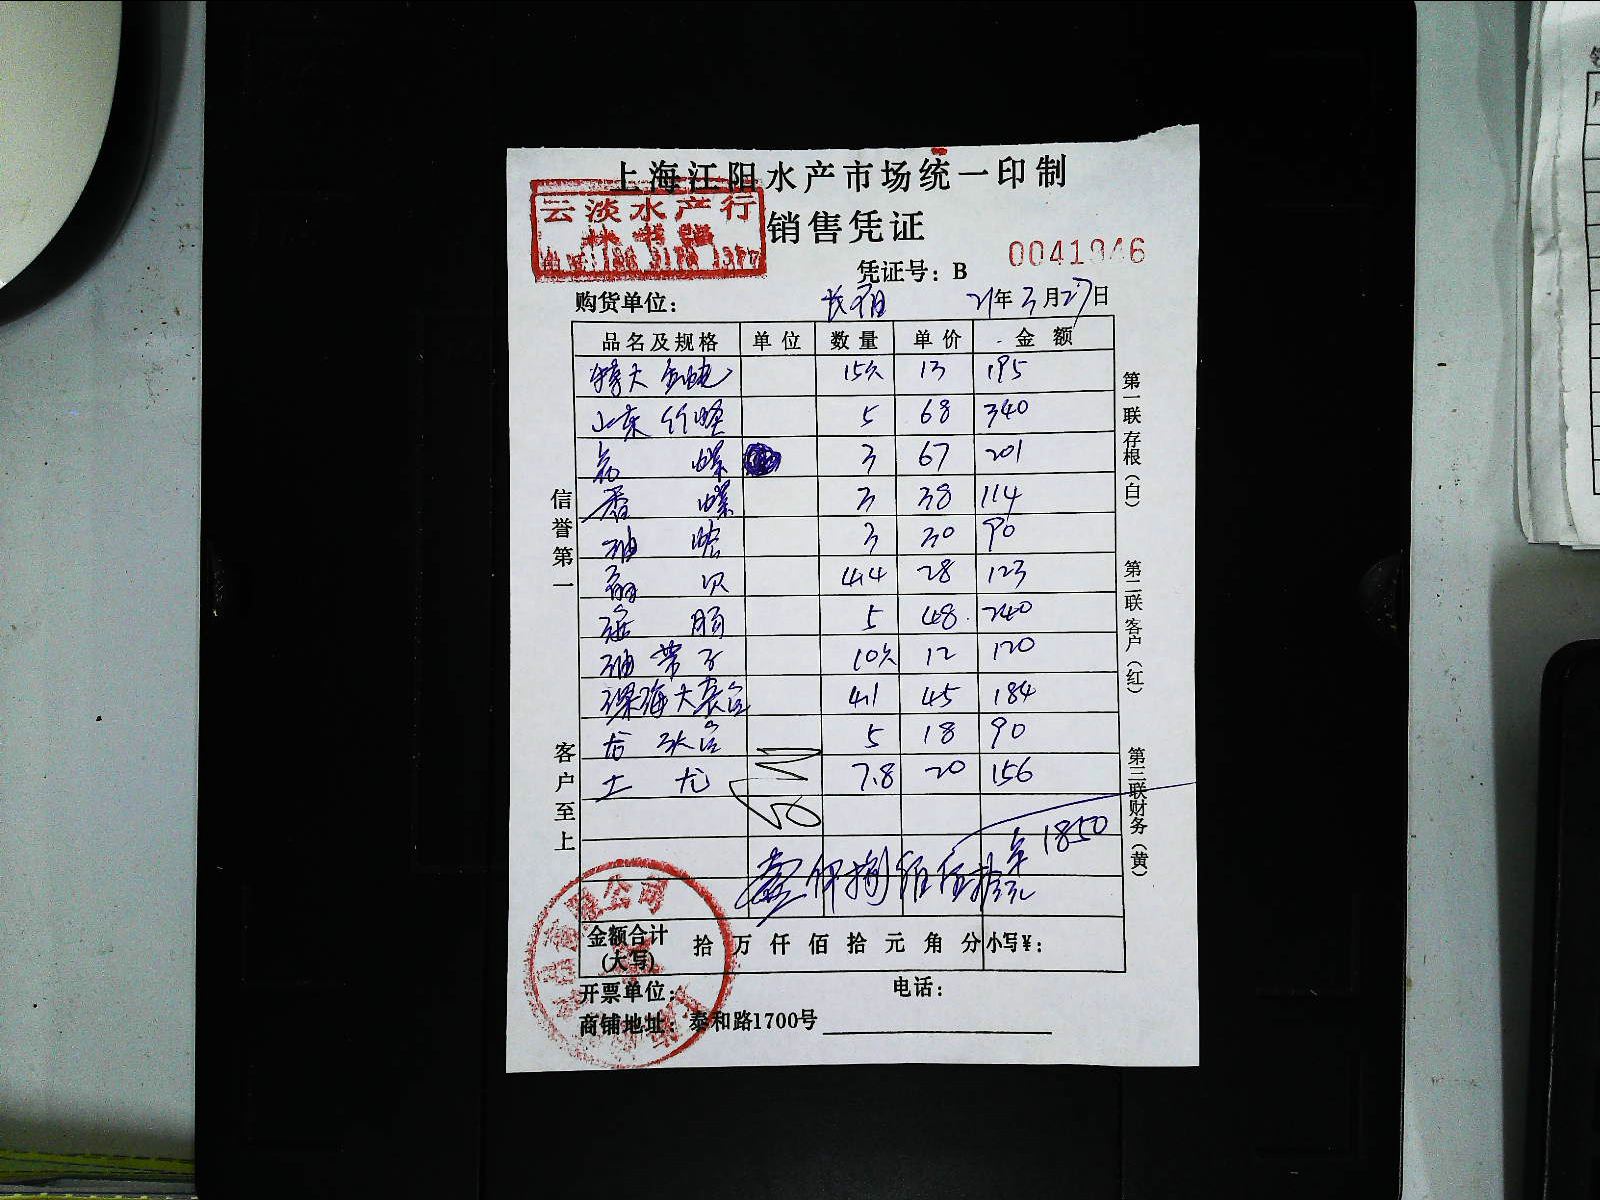 上海江阳水产市场统一印制
云淡水产行
销售凭证
凭证号：B 0041946
购货单位： 21年3月27日
品名及规格 单位 数量 单价 金额
特大 15只 13 195
山东竹蛏 5 68 340
花螺 3 67 201
香螺 3 38 114
油蛤 3 30 90
贝 4.4 28 123
5 48 240
油带子 10只 12 120
深海大 4.1 45 184
龙 5 18 90
土龙 7.8 20 156
1850
壹仟捌佰伍拾元
金额合计(大写) 拾 万 仟 佰 拾 元 角 分 小写￥：
开票单位： 电话：
商铺地址：泰和路1700号
信誉第一
客户至上
第一联存根（白）
第二联客户（红）
第三联财务（黄）
有限公司